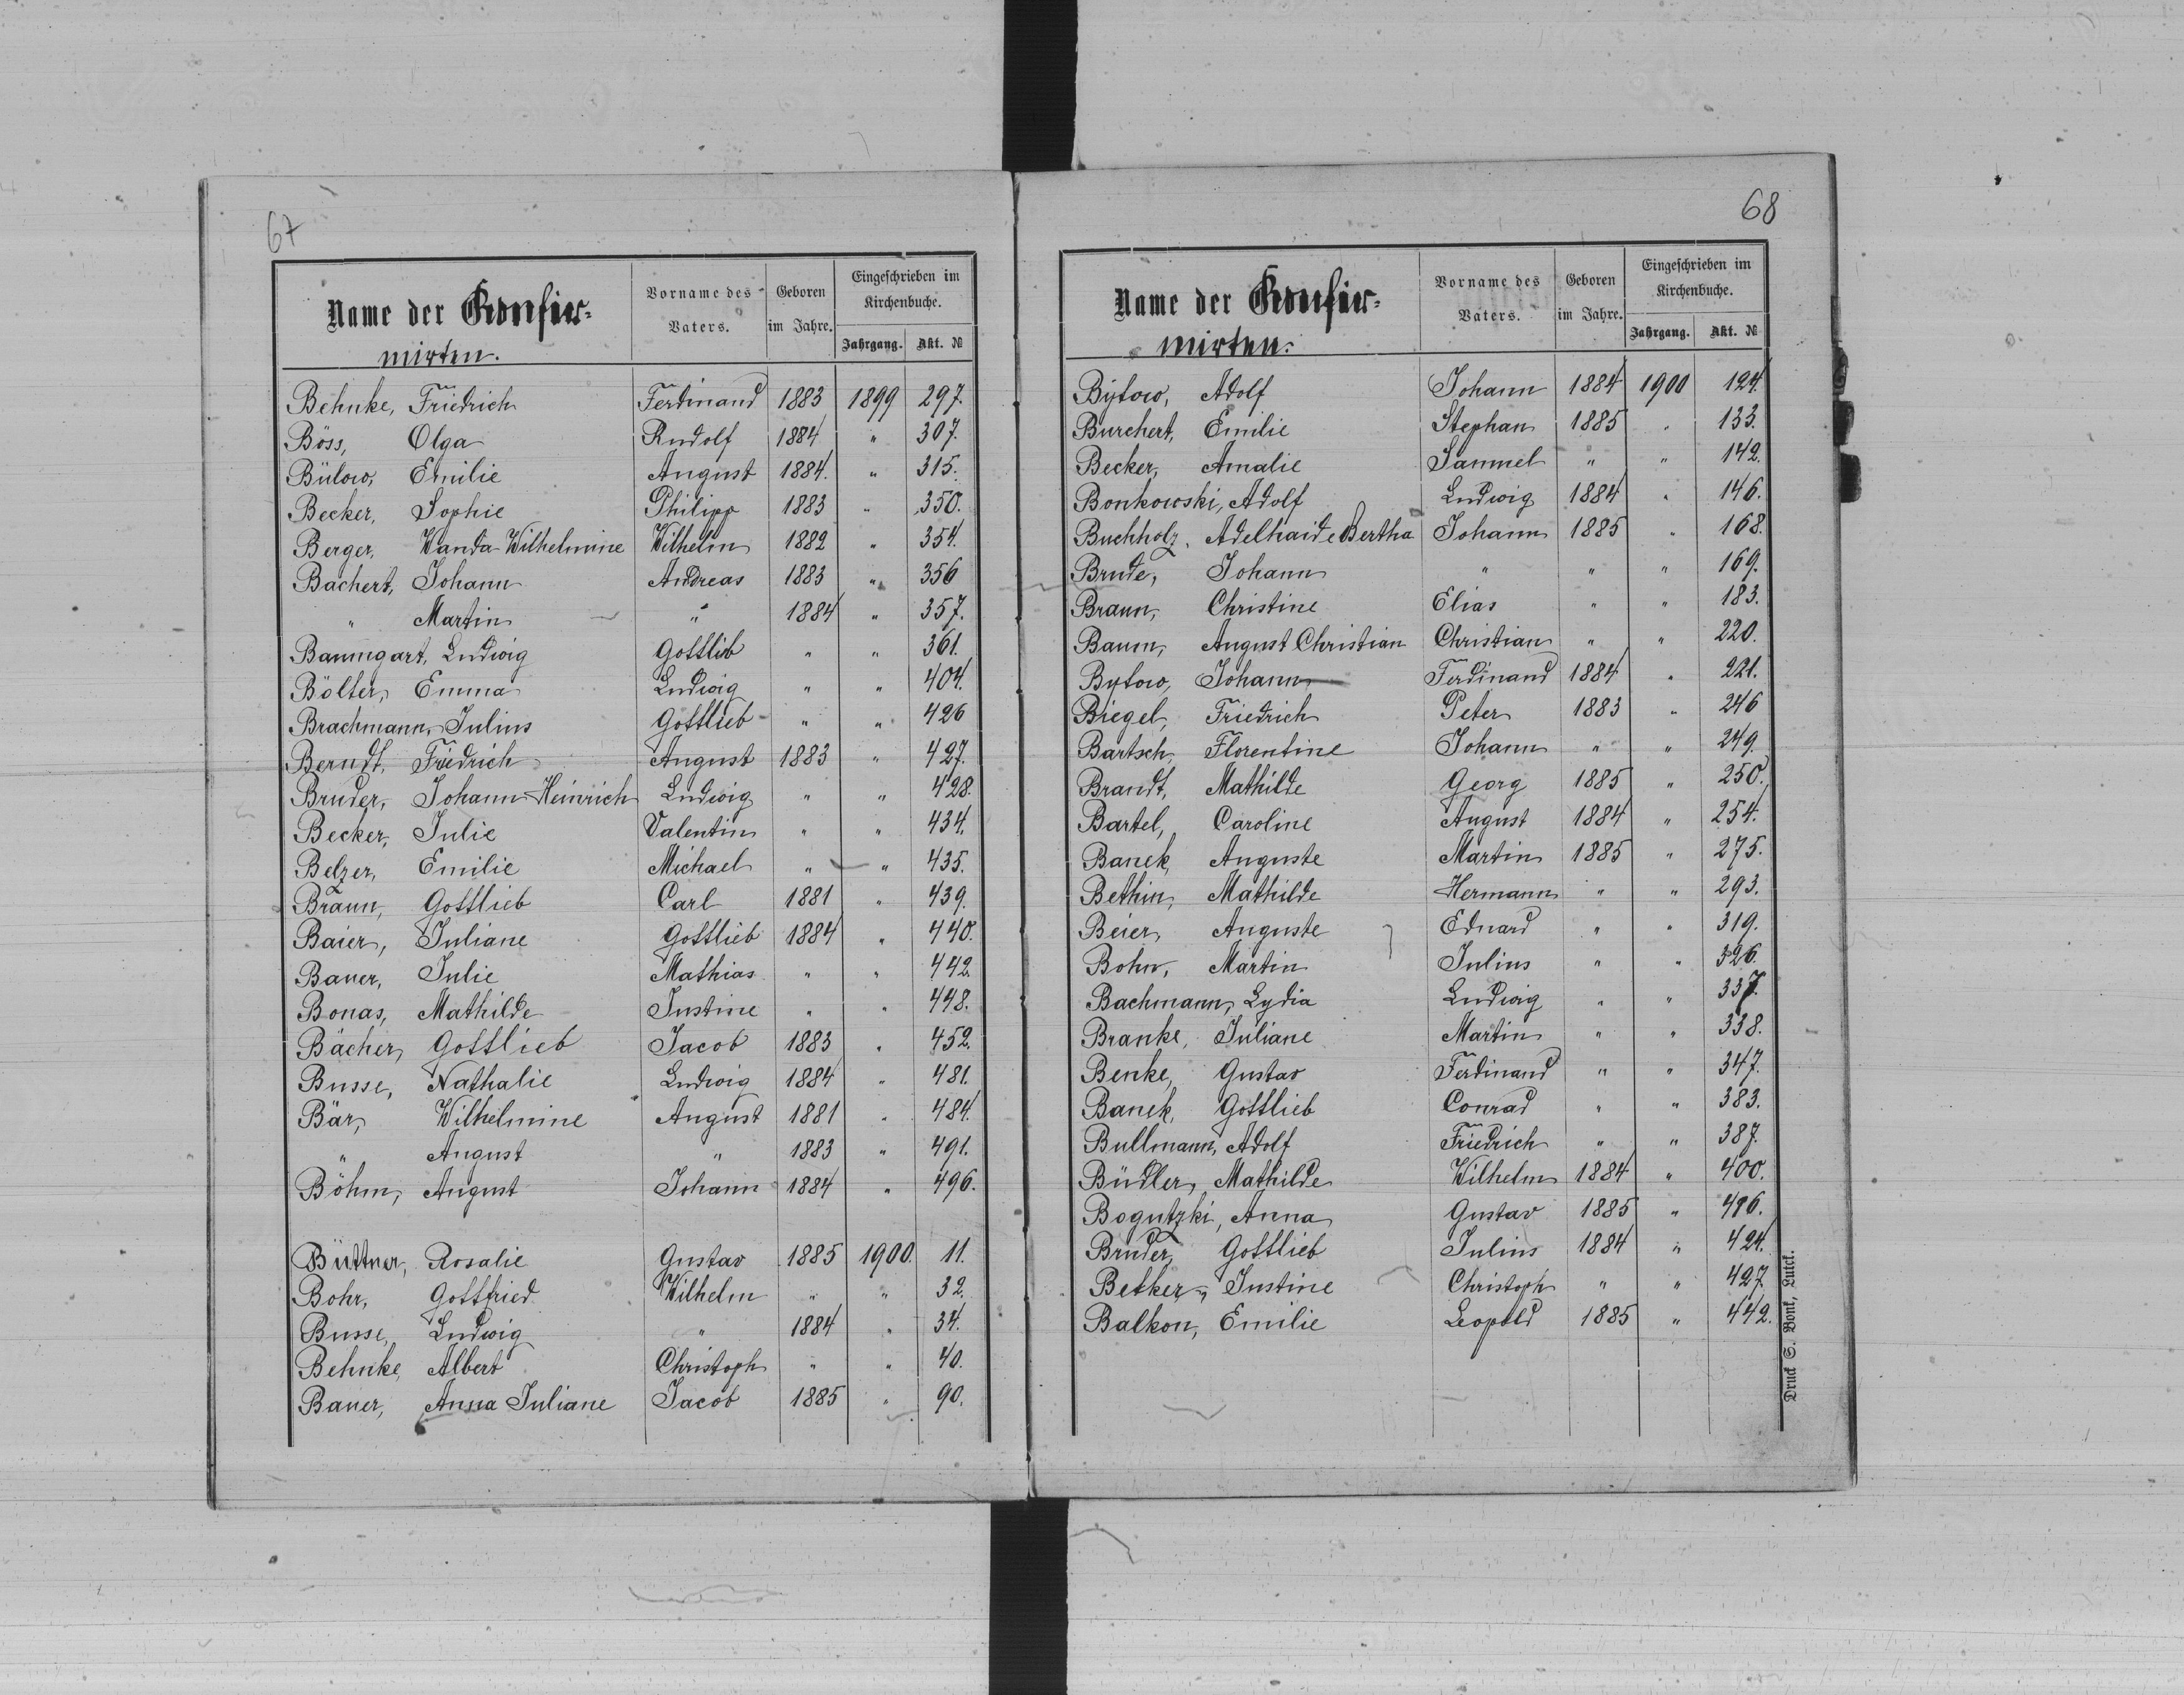 67
Name der Konfir-
mirten.
Vorname des
Vaters.
Geboren
im Jahre.
Eingeschrieben im
Kirchenbuche.
Jahrgang. Akt. №
Behnke, Friedrich Ferdinand 1883 1899 297.
Böss, Olga Rudolf 1884 " 307.
Bülow, Emilie August 1884. " 315.
Becker, Sophie Philipp 1883 " 350.
Berger, Wanda Wilhelmine Wilhelm 1882 " 354.
Bachert, Johann Andreas 1883 " 356
" Martin " 1884 " 357.
Baumgart, Ludwig Gottlieb " " 361.
Bölter, Emma Ludwig " " 404.
Brachmann, Julius Gottlieb " " 426
Berndt, Friedrich August 1883 " 427.
Bruder, Johann Heinrich Ludwig " " 428.
Becker, Julie Valentin " " 434.
Belzer, Emilie Michael " " 435.
Braun, Gottlieb Carl 1881 " 439.
Baier, Juliane Gottlieb 1884 " 440.
Bauer, Julie Mathias " " 442.
Bonas, Mathilde Justine " " 448.
Bächer, Gottlieb Jacob 1883 " 452.
Busse, Nathalie Ludwig 1884 " 481.
Bär, Wilhelmine August 1881 " 484.
" August " 1883 " 491.
Böhm, August Johann 1884 " 496.
Büttner, Rosalie Gustav 1885 1900. 11.
Bohr, Gottfried Wilhelm " " 32.
Busse, Ludwig " 1884 " 34.
Behnke, Albert Christoph " " 40.
Bauer, Anna Juliane Jacob 1885 " 90.
68
Name der Konfir-
mirten.
Vorname des
Vaters.
Geboren
im Jahre.
Eingeschrieben im
Kirchenbuche.
Jahrgang. Akt. №
Bytow, Adolf Johann 1884 1900 124.
Burchert, Emilie Stephan 1885 " 133.
Becker, Amalie Samuel " " 142.
Bonkowski, Adolf Ludwig 1884 " 146.
Buchholz, Adelhaide Bertha Johann 1885 " 168.
Brude, Johann " " " 169.
Braun, Christine Elias " " 183.
Baum, August Christian Christian " " 220.
Bytow, Johann Ferdinand 1884 " 221.
Biegel, Friedrich Peter 1883 " 246
Bartsch, Florentine Johann " " 249.
Brandt, Mathilde Georg 1885 " 250.
Bartel, Caroline August 1884 " 254.
Banek, Auguste Martin 1885 " 275.
Bethin, Mathilde Hermann " " 293.
Beier, Auguste Eduard " " 319.
Bohn, Martin Julius " " 326.
Bachmann, Lydia Ludwig " " 337.
Branke, Juliane Martin " " 338.
Benke, Gustav Ferdinand " " 347.
Banek, Gottlieb Conrad " " 383.
Bullmann, Adolf Friedrich " " 387.
Büdler, Mathilde Wilhelm 1884 " 400.
Bogutzki, Anna Gustav 1885 "
Bruder, Gottlieb Julius 1884 " 424.
Betker, Justine Christoph " " 427.
Balkon, Emilie Leopold 1885 " 442.
Druck S. Bonk, Lutzk.